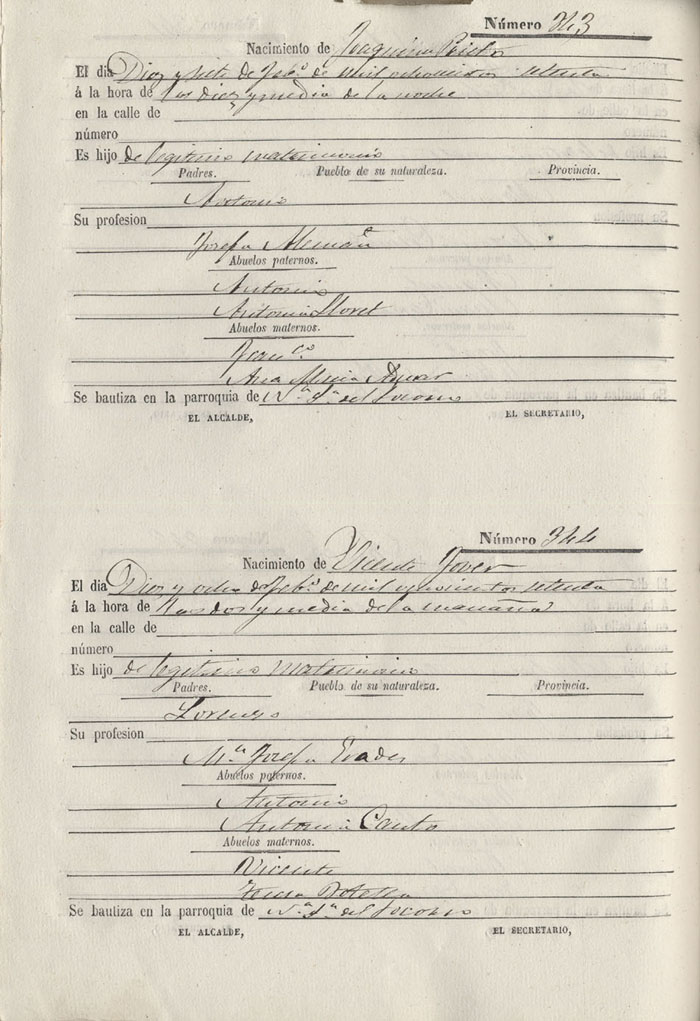 Número 343
Nacimiento de Joaquina
El dia Diez y siete de Febº de mil ochocientos setenta
á la hora de las diez y media de la noche
en la calle de
número
Es hijo de legitimo matrimonio
Padres. Pueblo de su naturaleza. Provincia.
Antonio
Su profesion
Josefa Alemañ
Abuelos paternos.
Antonio
Antonia Lloret
Abuelos maternos.
Francº
Ana Maria
Se bautiza en la parroquia de Nª Sª del Socorro
EL ALCALDE, EL SECRETARIO,
Número 344
Nacimiento de Vicente Jover
El dia Diez y ocho de Febº de mil ochocientos setenta
á la hora de las dos y media de la mañana
en la calle de
número
Es hijo de legitimo matrimonio
Padres. Pueblo de su naturaleza. Provincia.
Lorenzo
Su profesion
Mª Josefa
Abuelos paternos.
Antonio
Antonia Canto
Abuelos maternos.
Vicente
Teresa Botella
Se bautiza en la parroquia de Nª Sª del Socorro
EL ALCALDE, EL SECRETARIO,